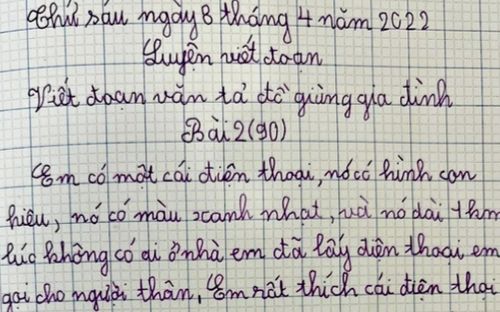 Thứ sáu ngày 8 tháng 4 năm 2022
Luyện viết đoạn
Viết đoạn văn tả đồ giùng gia đình
Bài 2 (90)
Em có một cái điện thoại, nó có hình con
hiêu, nó có màu xanh nhạt, và nó dài 1 thm
lúc không có ai ở nhà em đã lấy điện thoai em
gọi cho người thân, Em rất thích cái điện thoại